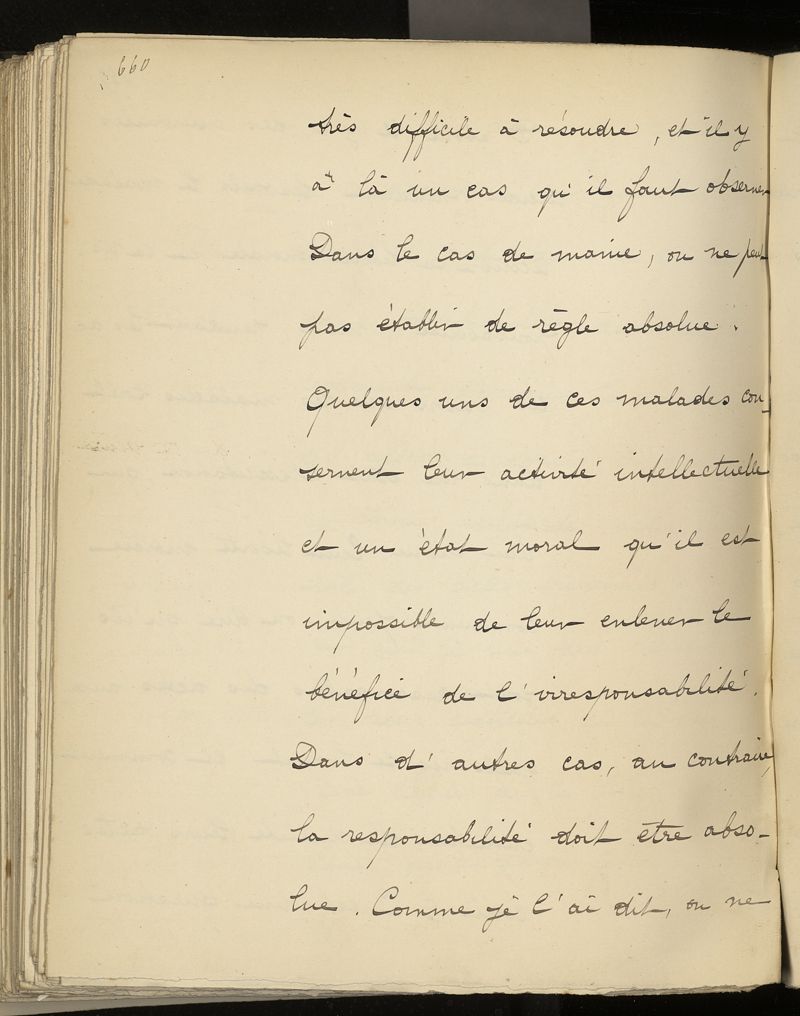 660
très difficile à résoudre, et il y
a là un cas qu'il faut observer
Dans le cas de manie, on ne peut
pas établir de règle absolue.
Quelques uns de ces malades con-
servent leur activité intellectuelle
et un état moral qu'il est
impossible de leur enlever le
bénéfice de l'irresponsabilité.
Dans d'autres cas, au contraire,
la responsabilité doit etre abso-
lue. Comme je l'ai dit, on ne